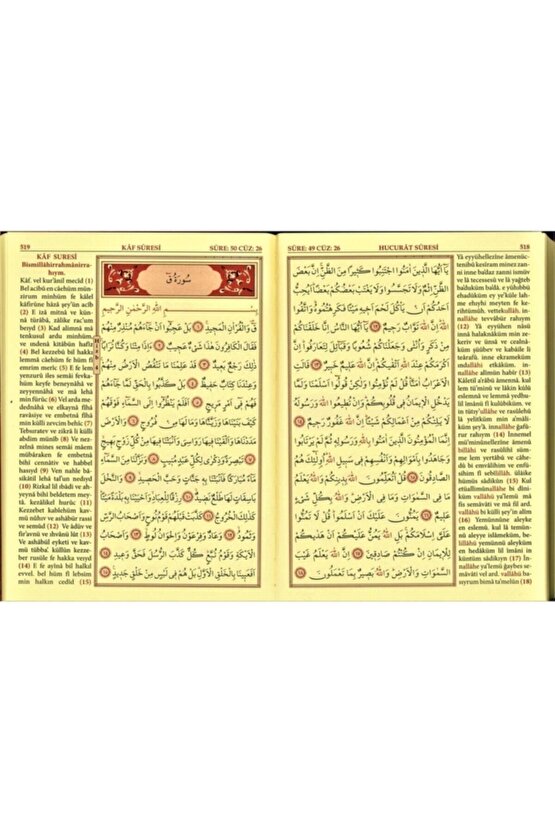 SÛRE: 49 CÜZ: 26 HUCURÂT SÛRESİ 518
يَا اَيُّهَا الَّذِينَ اٰمَنُوا اجْتَنِبُوا كَثِيرًا مِنَ الظَّنِّ اِنَّ بَعْضَ
الظَّنِّ اِثْمٌ وَلَا تَجَسَّسُوا وَلَا يَغْتَبْ بَعْضُكُمْ بَعْضًا اَيُحِبُّ
اَحَدُكُمْ اَنْ يَاْكُلَ لَحْمَ اَخِيهِ مَيْتًا فَكَرِهْتُمُوهُ وَاتَّقُوا
اللّٰهَ اِنَّ اللّٰهَ تَوَّابٌ رَحِيمٌ ﴿١٢﴾ يَا اَيُّهَا النَّاسُ اِنَّا خَلَقْنَاكُمْ
مِنْ ذَكَرٍ وَاُنْثٰى وَجَعَلْنَاكُمْ شُعُوبًا وَقَبَائِلَ لِتَعَارَفُوا اِنَّ
اَكْرَمَكُمْ عِنْدَ اللّٰهِ اَتْقٰيكُمْ اِنَّ اللّٰهَ عَلِيمٌ خَبِيرٌ ﴿١٣﴾ قَالَتِ
الْاَعْرَابُ اٰمَنَّا قُلْ لَمْ تُؤْمِنُوا وَلٰكِنْ قُولُوا اَسْلَمْنَا وَلَمَّا
يَدْخُلِ الْاِيمَانُ فِى قُلُوبِكُمْ وَاِنْ تُطِيعُوا اللّٰهَ وَرَسُولَهُ
لَا يَلِتْكُمْ مِنْ اَعْمَالِكُمْ شَيْئًا اِنَّ اللّٰهَ غَفُورٌ رَحِيمٌ ﴿١٤﴾
اِنَّمَا الْمُؤْمِنُونَ الَّذِينَ اٰمَنُوا بِاللّٰهِ وَرَسُولِهِ ثُمَّ لَمْ يَرْتَابُوا
وَجَاهَدُوا بِاَمْوَالِهِمْ وَاَنْفُسِهِمْ فِى سَبِيلِ اللّٰهِ اُولٰئِكَ هُمُ
الصَّادِقُونَ ﴿١٥﴾ قُلْ اَتُعَلِّمُونَ اللّٰهَ بِدِينِكُمْ وَاللّٰهُ يَعْلَمُ
مَا فِى السَّمٰوَاتِ وَمَا فِى الْاَرْضِ وَاللّٰهُ بِكُلِّ شَىْءٍ
عَلِيمٌ ﴿١٦﴾ يَمُنُّونَ عَلَيْكَ اَنْ اَسْلَمُوا قُلْ لَا تَمُنُّوا
عَلَىَّ اِسْلَامَكُمْ بَلِ اللّٰهُ يَمُنُّ عَلَيْكُمْ اَنْ هَدٰيكُمْ
لِلْاِيمَانِ اِنْ كُنْتُمْ صَادِقِينَ ﴿١٧﴾ اِنَّ اللّٰهَ يَعْلَمُ غَيْبَ
السَّمٰوَاتِ وَالْاَرْضِ وَاللّٰهُ بَصِيرٌ بِمَا تَعْمَلُونَ ﴿١٨﴾
Yâ eyyühellezîne âmenüc-
tenibû kesîram minez zanni
inne ba'daz zanni ismüv
ve lâ tecessesû ve lâ yağteb
ba'duküm ba'dâ. e yühıbbü
ehadüküm ey ye'küle lah-
me ehıyhi meyten fe ke-
rihtümûh. vettekullâh. in-
nallâhe tevvâbür rahıym
(12) Yâ eyyühen nâsü
innâ halaknâküm min ze-
keriv ve ünsâ ve cealnâ-
küm şüûbev ve kabâile li
teârafû. inne ekrameküm
ındallâhi etkâküm. in-
nallâhe alîmün habîr (13)
Kâletil a'râbü âmennâ. kul
lem tü'minû ve lâkin kûlû
eslemnâ ve lemmâ yedhu-
lil îmânü fî kulûbiküm. ve
in tütıy'ullâhe ve rasûlehû
lâ yelitküm min a'mâli-
küm şey'â. innallâhe ğafû-
rur rahıym (14) İnnemel
mü'minûnellezîne âmenû
billâhi ve rasûlihî süm-
me lem yertâbû ve câhe-
dû bi emvâlihim ve enfü-
sihim fî sebîlillâh. ülâike
hümüs sâdikûn (15) Kul
etüallimûnallâhe bi dîni-
küm vallâhü ya'lemü mâ
fis semâvâti ve mâ fil ard.
vallâhü bi külli şey'in alîm
(16) Yemünnûne aleyke
en eslemû. kul lâ temün-
nû aleyye islâmeküm, be-
lillâhü yemünnü aleyküm
en hedâküm lil îmâni in
küntüm sâdikıyn (17) İn-
nallâhe ya'lemü ğaybes se-
mâvâti vel ard. vallâhü ba-
sıyrum bimâ ta'melûn (18)
519 KÂF SÛRESİ SÛRE: 50 CÜZ: 26
سُورَةُ قٓ
بِسْمِ اللّٰهِ الرَّحْمٰنِ الرَّحِيمِ
قٓ وَالْقُرْاٰنِ الْمَجِيدِ ﴿١﴾ بَلْ عَجِبُوا اَنْ جَاءَهُمْ مُنْذِرٌ مِنْهُمْ
فَقَالَ الْكَافِرُونَ هٰذَا شَىْءٌ عَجِيبٌ ﴿٢﴾ ءَاِذَا مِتْنَا وَكُنَّا تُرَابًا
ذٰلِكَ رَجْعٌ بَعِيدٌ ﴿٣﴾ قَدْ عَلِمْنَا مَا تَنْقُصُ الْاَرْضُ مِنْهُمْ
وَعِنْدَنَا كِتَابٌ حَفِيظٌ ﴿٤﴾ بَلْ كَذَّبُوا بِالْحَقِّ لَمَّا جَاءَهُمْ
فَهُمْ فِى اَمْرٍ مَرِيجٍ ﴿٥﴾ اَفَلَمْ يَنْظُرُوا اِلَى السَّمَاءِ فَوْقَهُمْ
كَيْفَ بَنَيْنَاهَا وَزَيَّنَّاهَا وَمَا لَهَا مِنْ فُرُوجٍ ﴿٦﴾ وَالْاَرْضَ
مَدَدْنَاهَا وَاَلْقَيْنَا فِيهَا رَوَاسِىَ وَاَنْبَتْنَا فِيهَا مِنْ كُلِّ زَوْجٍ بَهِيجٍ
﴿٧﴾ تَبْصِرَةً وَذِكْرٰى لِكُلِّ عَبْدٍ مُنِيبٍ ﴿٨﴾ وَنَزَّلْنَا مِنَ السَّمَاءِ
مَاءً مُبَارَكًا فَاَنْبَتْنَا بِهِ جَنَّاتٍ وَحَبَّ الْحَصِيدِ ﴿٩﴾ وَالنَّخْلَ
بَاسِقَاتٍ لَهَا طَلْعٌ نَضِيدٌ ﴿١٠﴾ رِزْقًا لِلْعِبَادِ وَاَحْيَيْنَا بِهِ بَلْدَةً مَيْتًا
كَذٰلِكَ الْخُرُوجُ ﴿١١﴾ كَذَّبَتْ قَبْلَهُمْ قَوْمُ نُوحٍ وَاَصْحَابُ الرَّسِّ
وَثَمُودُ ﴿١٢﴾ وَعَادٌ وَفِرْعَوْنُ وَاِخْوَانُ لُوطٍ ﴿١٣﴾ وَاَصْحَابُ
الْاَيْكَةِ وَقَوْمُ تُبَّعٍ كُلٌّ كَذَّبَ الرُّسُلَ فَحَقَّ وَعِيدِ ﴿١٤﴾
اَفَعَيِينَا بِالْخَلْقِ الْاَوَّلِ بَلْ هُمْ فِى لَبْسٍ مِنْ خَلْقٍ جَدِيدٍ ﴿١٥﴾
KÂF SURESİ
Bismillâhirrahmânirra-
hıym.
Kâf. vel kur'ânil mecîd (1)
Bel acibû en câehüm mün-
zirum minhüm fe kâlel
kâfirûne hâzâ şey'ün acîb
(2) E izâ mitnâ ve kün-
nâ türâbâ, zâlike rac'um
beıyd (3) Kad alimnâ mâ
tenkusul ardu minhüm,
ve ındenâ kitâbün hafıyz
(4) Bel kezzebû bil hakkı
lemmâ câehüm fe hüm fî
emrim merîc (5) E fe lem
yenzurû iles semâi fevka-
hüm keyfe beneynâhâ ve
zeyyennâhâ ve mâ lehâ
min fürûc (6) Vel arda me-
dednâhâ ve elkaynâ fîhâ
ravâsiye ve enbetnâ fîhâ
min külli zevcim behîc (7)
Tebsıratev ve zikrâ li külli
abdim münîb (8) Ve nez-
zelnâ mines semâi mâem
mübâraken fe embetnâ
bihî cennâtiv ve habbel
hasıyd (9) Ven nahle bâ-
sikâtil lehâ tal'un nedıyd
(10) Rizkal lil ıbâdi ve ah-
yeynâ bihî beldetem mey-
tâ. kezâlikel hurûc (11)
Kezzebet kablehüm kav-
mü nûhıv ve ashâbür rassi
ve semûd (12) Ve âdüv ve
fir'avnü ve ıhvânü lût (13)
Ve ashâbül eyketi ve kav-
mü tübba'. küllün kezze-
ber rusüle fe hakka veıyd
(14) E fe ayînâ bil halkıl
evvel. bel hüm fî lebsim
min halkın cedîd (15)